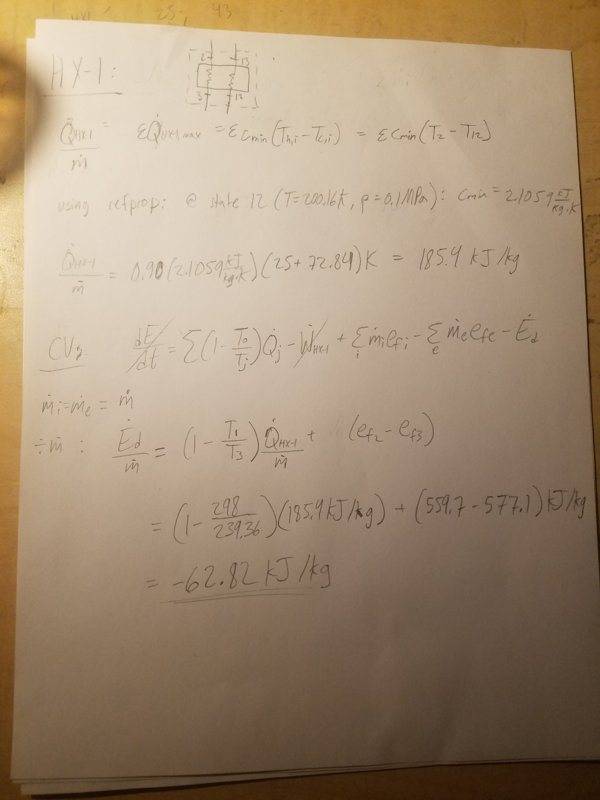 HX-1:
2 13
3 12
Q̇HX-1/ṁ = εQ̇HX-1,max = εCmin(Th,i - Tc,i) = εCmin(T2 - T12)
using refprop: @ state 12 (T=200.16K, p=0.1MPa): Cmin = 2.1059 kJ/kg·K
Q̇HX-1/ṁ = 0.90(2.1059 kJ/kg·K)(25+72.84)K = 185.4 kJ/kg
CV2 dE/dt = Σ(1 - T0/Tj)Q̇j - ẆHX-1 + Σi ṁi efi - Σe ṁe efe - Ėd
ṁi=ṁe = ṁ
÷ṁ: Ėd/ṁ = (1 - T1/T3) Q̇HX-1/ṁ + (ef2 - ef3)
= (1 - 298/239.36)(185.4 kJ/kg) + (559.7 - 577.1) kJ/kg
= -62.82 kJ/kg